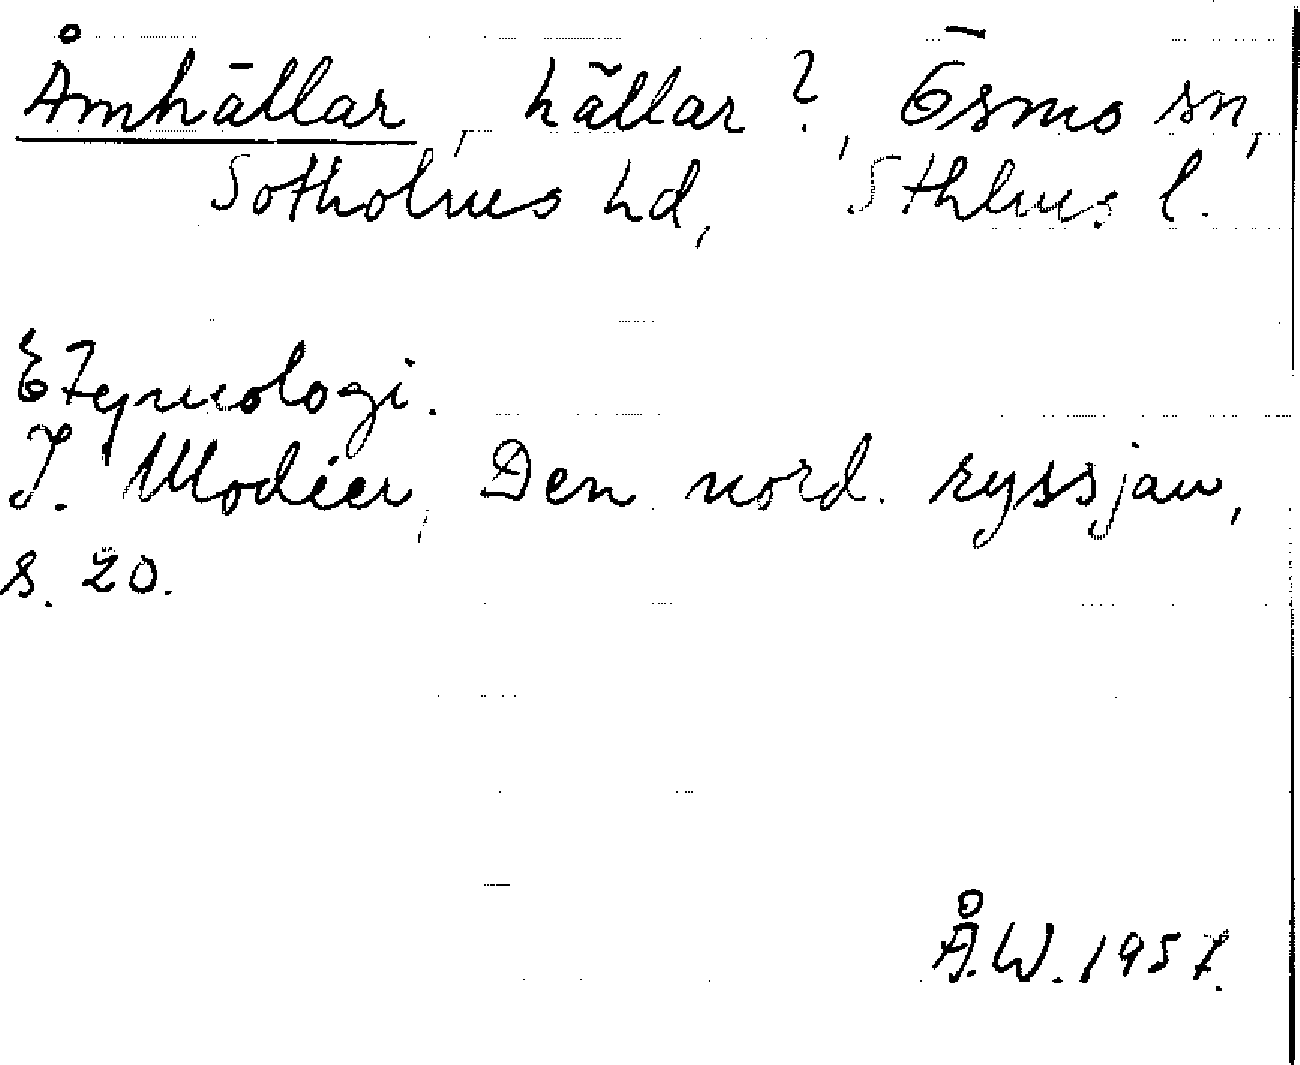 Åmhällar, hällar?, Ösmo sn,
Sotholms hd, Sthlms l.
Etymologi.
I. Modéer, Den nord. ryssjan,
s. 20.
Å.W. 1957.